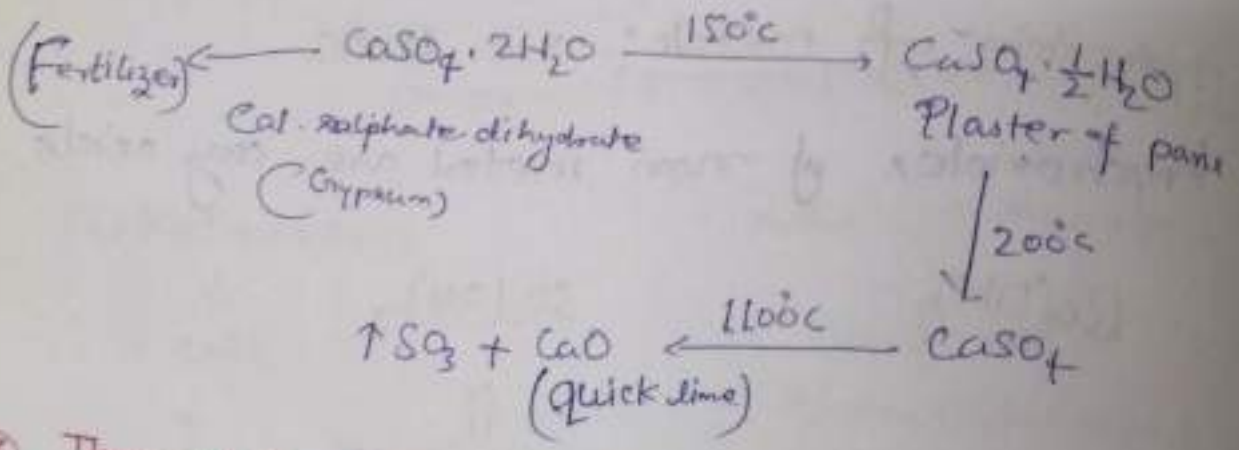 (Fertilizer) ← CaSO4 · 2H2O —150°C→ CaSO4 · 1/2 H2O
Cal. sulphate dihydrate
(Gypsum)
Plaster of paris
↓ 200°C
↑ SO3 + CaO ←1100°C— CaSO4
(quick lime)